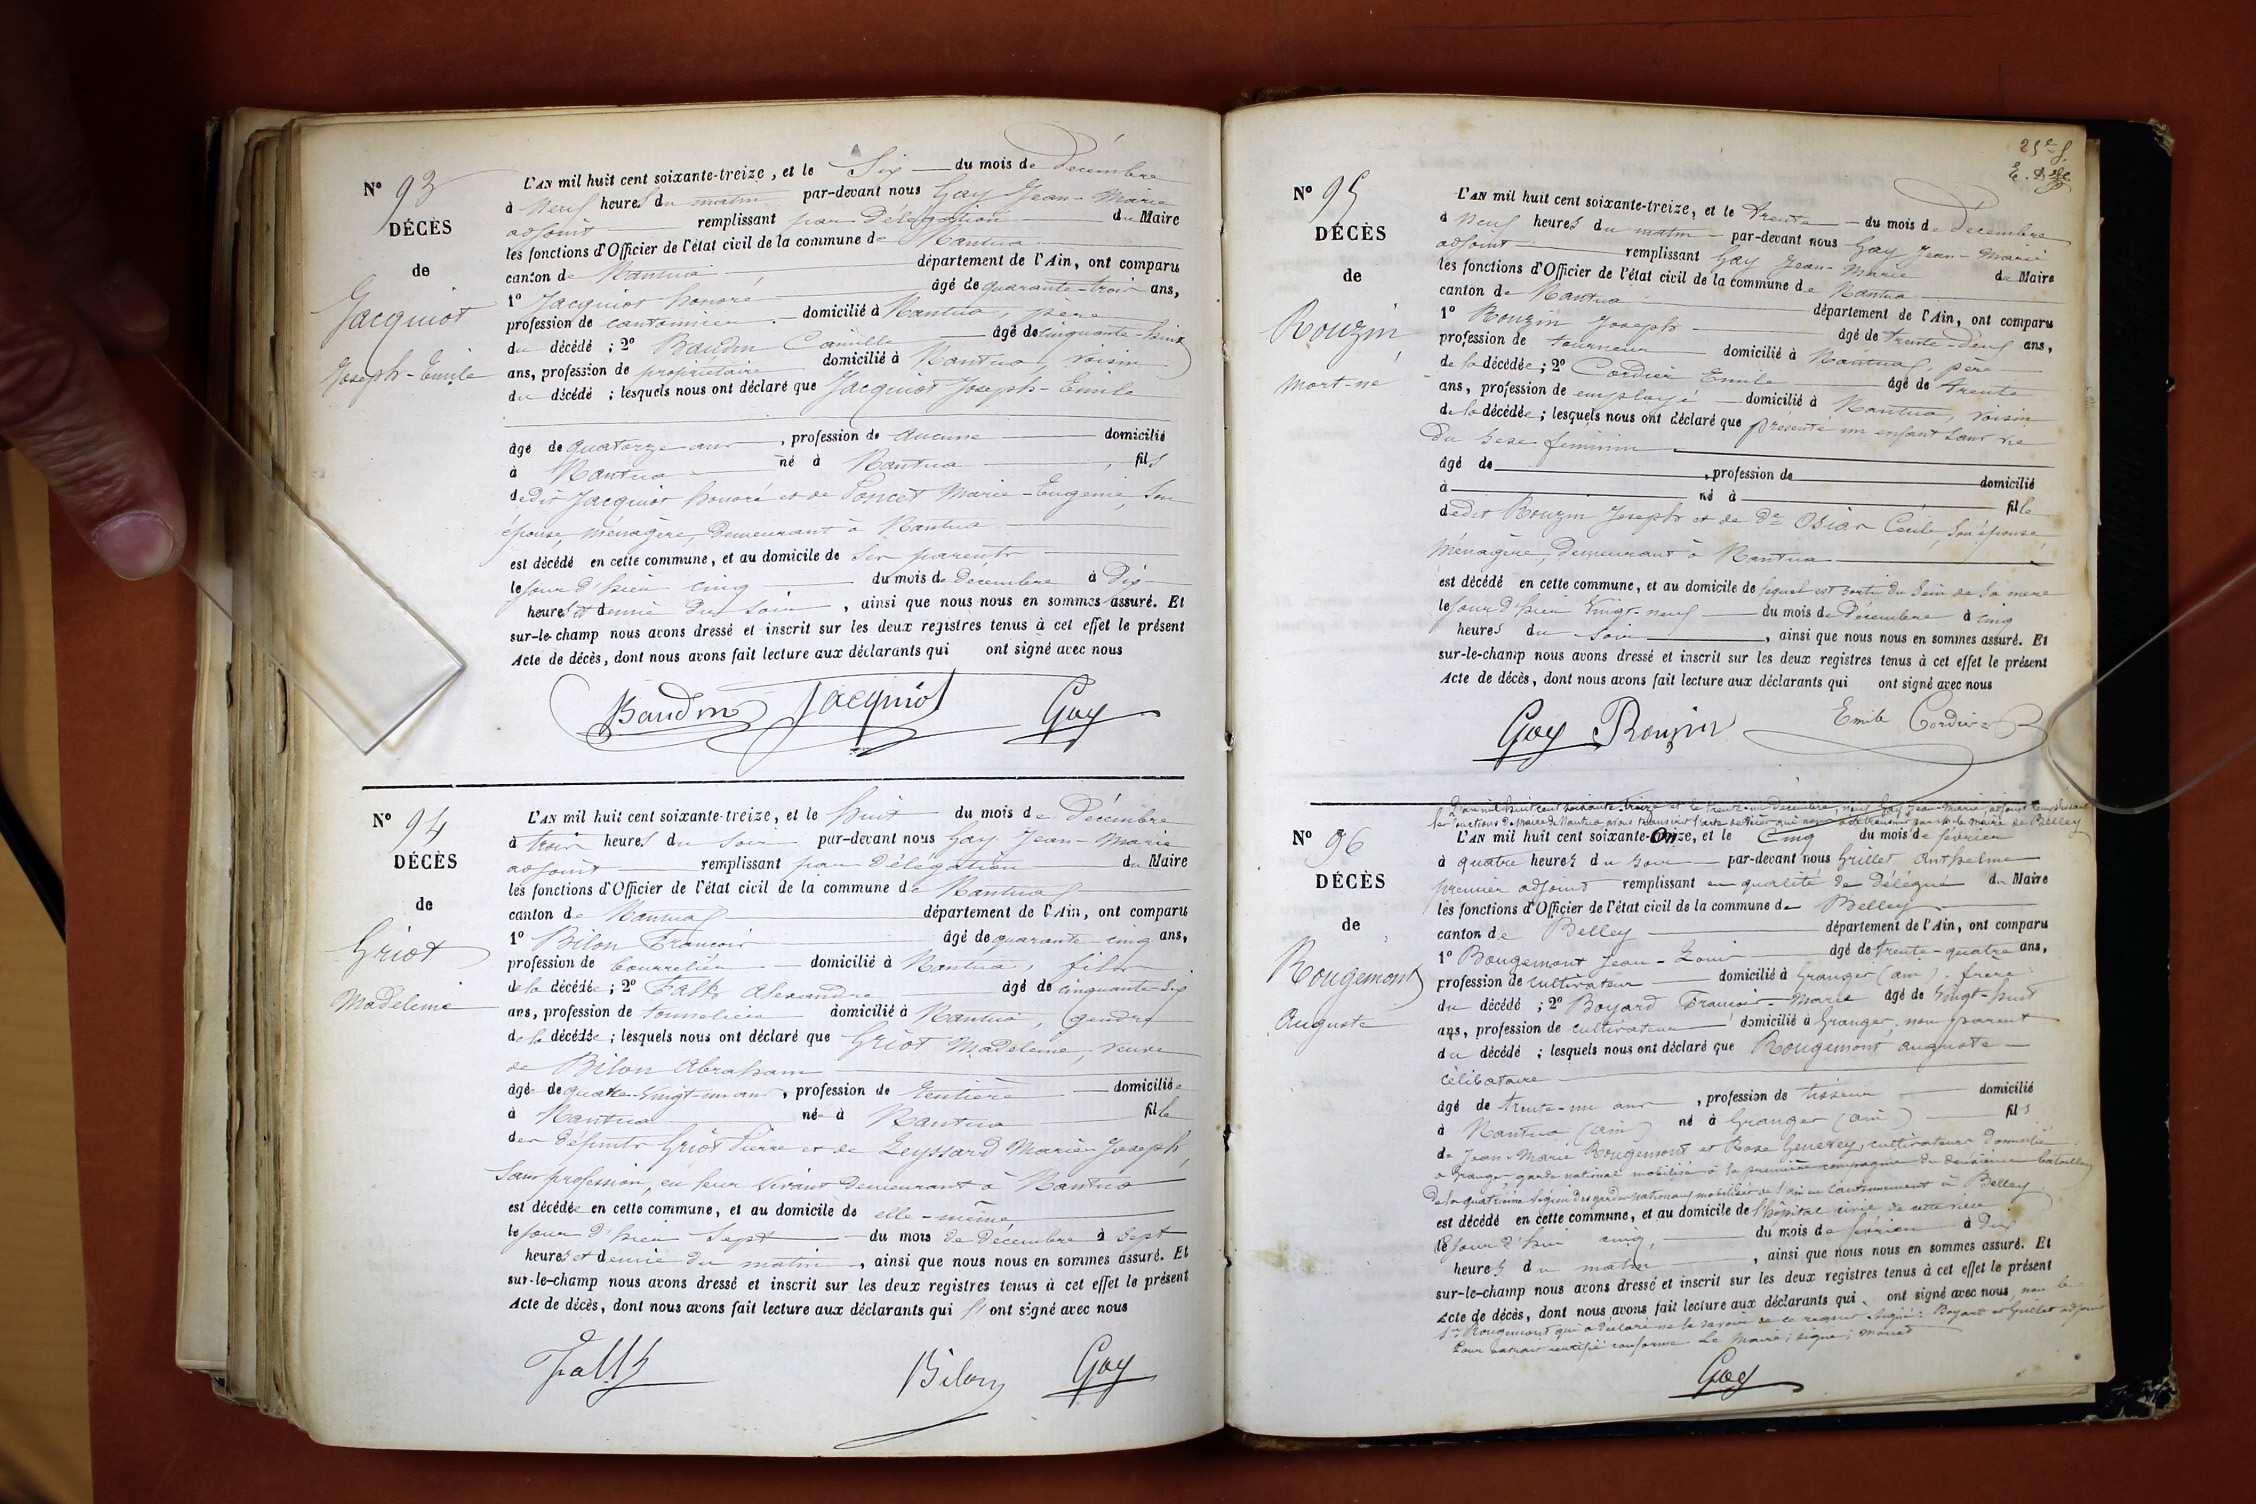 N° 93
DÉCÈS
de
Jacquiot
Joseph-Emile
L'AN mil huit cent soixante-treize, et le Six du mois de Décembre
à Neuf heures du matin par-devant nous Gay Jean-Marie
adjoint remplissant par Délégation du Maire
les fonctions d'Officier de l'état civil de la commune de Nantua
canton de Nantua département de l'Ain, ont comparu
1° Jacquiot honoré âgé de quarante-trois ans,
profession de cantonnier domicilié à Nantua, père
du décédé ; 2° Baudin Camille âgé de cinquante-huit
ans, profession de propriétaire domicilié à Nantua, voisin
du décédé ; lesquels nous ont déclaré que Jacquiot Joseph-Emile
âgé de quatorze ans, profession de aucune domicilié
à Nantua né à Nantua, fils
dedit Jacquiot honoré et de Poncet Marie-Eugénie, son
épouse ménagère, demeurant à Nantua
est décédé en cette commune, et au domicile de ses parents
le jour d'hier cinq du mois de décembre à Dix
heures et demie du soir, ainsi que nous nous en sommes assuré. Et
sur-le-champ nous avons dressé et inscrit sur les deux registres tenus à cet effet le présent
Acte de décès, dont nous avons fait lecture aux déclarants qui ont signé avec nous
Baudin Jacquiot Gay
N° 94
DÉCÈS
de
Griot
Madeleine
L'AN mil huit cent soixante-treize, et le huit du mois de Décembre
à trois heures du soir par-devant nous Gay Jean-Marie
adjoint remplissant par Délégation du Maire
les fonctions d'Officier de l'état civil de la commune de Nantua
canton de Nantua département de l'Ain, ont comparu
1° Bilon François âgé de quarante-cinq ans,
profession de bourrelier domicilié à Nantua, fils
de la décédée ; 2° Falk Alexandre âgé de cinquante-six
ans, profession de tonnelier domicilié à Nantua, gendre
de la décédée ; lesquels nous ont déclaré que Griot Madeleine, veuve
de Bilon Abraham
âgée de quatre-vingt-un ans, profession de rentière domiciliée
à Nantua née à Nantua fille
des défunts Griot Pierre et de Leyssard Marie-Joseph,
sans profession, en leur vivant demeurant à Nantua
est décédée en cette commune, et au domicile de elle-même
le jour d'hier sept du mois de décembre à sept
heures et demie du matin, ainsi que nous nous en sommes assuré. Et
sur-le-champ nous avons dressé et inscrit sur les deux registres tenus à cet effet le présent
Acte de décès, dont nous avons fait lecture aux déclarants qui ont signé avec nous
Falk Bilon Gay
N° 95
DÉCÈS
de
Rouzin
mort-né
L'AN mil huit cent soixante-treize, et le trente du mois de Décembre
à neuf heures du matin par-devant nous Gay Jean-Marie
adjoint remplissant Gay Jean-Marie du Maire
les fonctions d'Officier de l'état civil de la commune de Nantua
canton de Nantua département de l'Ain, ont comparu
1° Rouzin Joseph âgé de trente-deux ans,
profession de tourneur domicilié à Nantua, père
de la décédée ; 2° Cordier Emile âgé de trente
ans, profession de employé domicilié à Nantua, voisin
de la décédée ; lesquels nous ont déclaré que présenté un enfant sans vie
du sexe féminin
âgé de, profession de domicilié
à né à fille
dedit Rouzin Joseph et de De Cécile, son épouse,
ménagère, demeurant à Nantua
est décédé en cette commune, et au domicile de lequel est sorti du sein de sa mère
le jour d'hier vingt-neuf du mois de Décembre à cinq
heures du soir, ainsi que nous nous en sommes assuré. Et
sur-le-champ nous avons dressé et inscrit sur les deux registres tenus à cet effet le présent
Acte de décès, dont nous avons fait lecture aux déclarants qui ont signé avec nous
Gay Rouzin Emile Cordier
N° 96
DÉCÈS
de
Rougemont
Auguste
L'an mil huit cent soixante-treize et le trente-un Décembre, nous Gay Jean-Marie, adjoint remplissant
les fonctions de Maire de Nantua avons transcrit l'acte de décès qui nous a été transmis par le maire de Belley
L'AN mil huit cent soixante-Onze, et le Cinq du mois de février
à quatre heures du soir par-devant nous Grillet Anthelme
premier adjoint remplissant en qualité de délégué du Maire
les fonctions d'Officier de l'état civil de la commune de Belley
canton de Belley département de l'Ain, ont comparu
1° Rougemont Jean-Louis âgé de trente-quatre ans,
profession de cultivateur domicilié à Granger (ain), frère
du décédé ; 2° Boyard François-Marie âgé de vingt-huit
ans, profession de cultivateur domicilié à Granger, non parent
du décédé ; lesquels nous ont déclaré que Rougemont auguste
célibataire
âgé de trente-un ans, profession de tisseur domicilié
à Nantua (ain) né à Granger (ain) fils
de Jean-Marie Rougemont et Rose Genevey, cultivateurs domiciliés
à Granger, garde national mobilisé à la première compagnie du deuxième bataillon
de la quatrième légion des gardes nationaux mobilisés de l'Ain en cantonnement à Belley
est décédé en cette commune, et au domicile de l'hôpital civil de cette ville
le jour d'hui cinq, du mois de février à dix
heures du matin, ainsi que nous nous en sommes assuré. Et
sur-le-champ nous avons dressé et inscrit sur les deux registres tenus à cet effet le présent
Acte de décès, dont nous avons fait lecture aux déclarants qui ont signé avec nous, non le
sr Rougemont qui a déclaré ne le savoir de ce requis signé : Boyard et Grillet adjoint
Pour extrait certifié conforme Le Maire : signé :
Gay